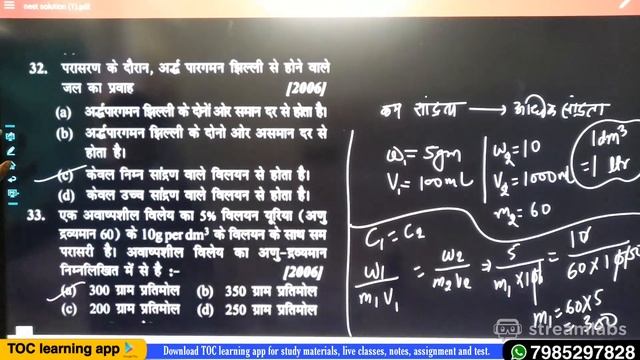 neet solution (1).pdf
32. परासरण के दौरान, अर्द्ध पारगमन झिल्ली से होने वाले
जल का प्रवाह [2006]
(a) अर्द्धपारगमन झिल्ली के दोनों ओर समान दर से होता है।
(b) अर्द्धपारगमन झिल्ली के दोनो ओर असमान दर से
होता है।
(c) केवल निम्न सांद्रण वाले विलयन से होता है।
(d) केवल उच्च सांद्रण वाले विलयन से होता है।
33. एक अवाष्पशील विलेय का 5% विलयन यूरिया (अणु
द्रव्यमान 60) के 10g per dm³ के विलयन के साथ सम
परासरी है। अवाष्पशील विलेय का अणु-द्रव्यमान
निम्नलिखित में से है :- [2006]
(a) 300 ग्राम प्रतिमोल (b) 350 ग्राम प्रतिमोल
(c) 200 ग्राम प्रतिमोल (d) 250 ग्राम प्रतिमोल
कम सांद्रता → अधिक सांद्रता
W₁ = 5gm
V₁ = 100mL
W₂ = 10
V₂ = 1000mL
m₂ = 60
1dm³
= 1 ltr
C₁ = C₂
W₁/m₁V₁ = W₂/m₂V₂ ⇒
m₁ = 60×5
= 300
streamlabs
TOC learning app
Download TOC learning app for study materials, live classes, notes, assignment and test.
7985297828